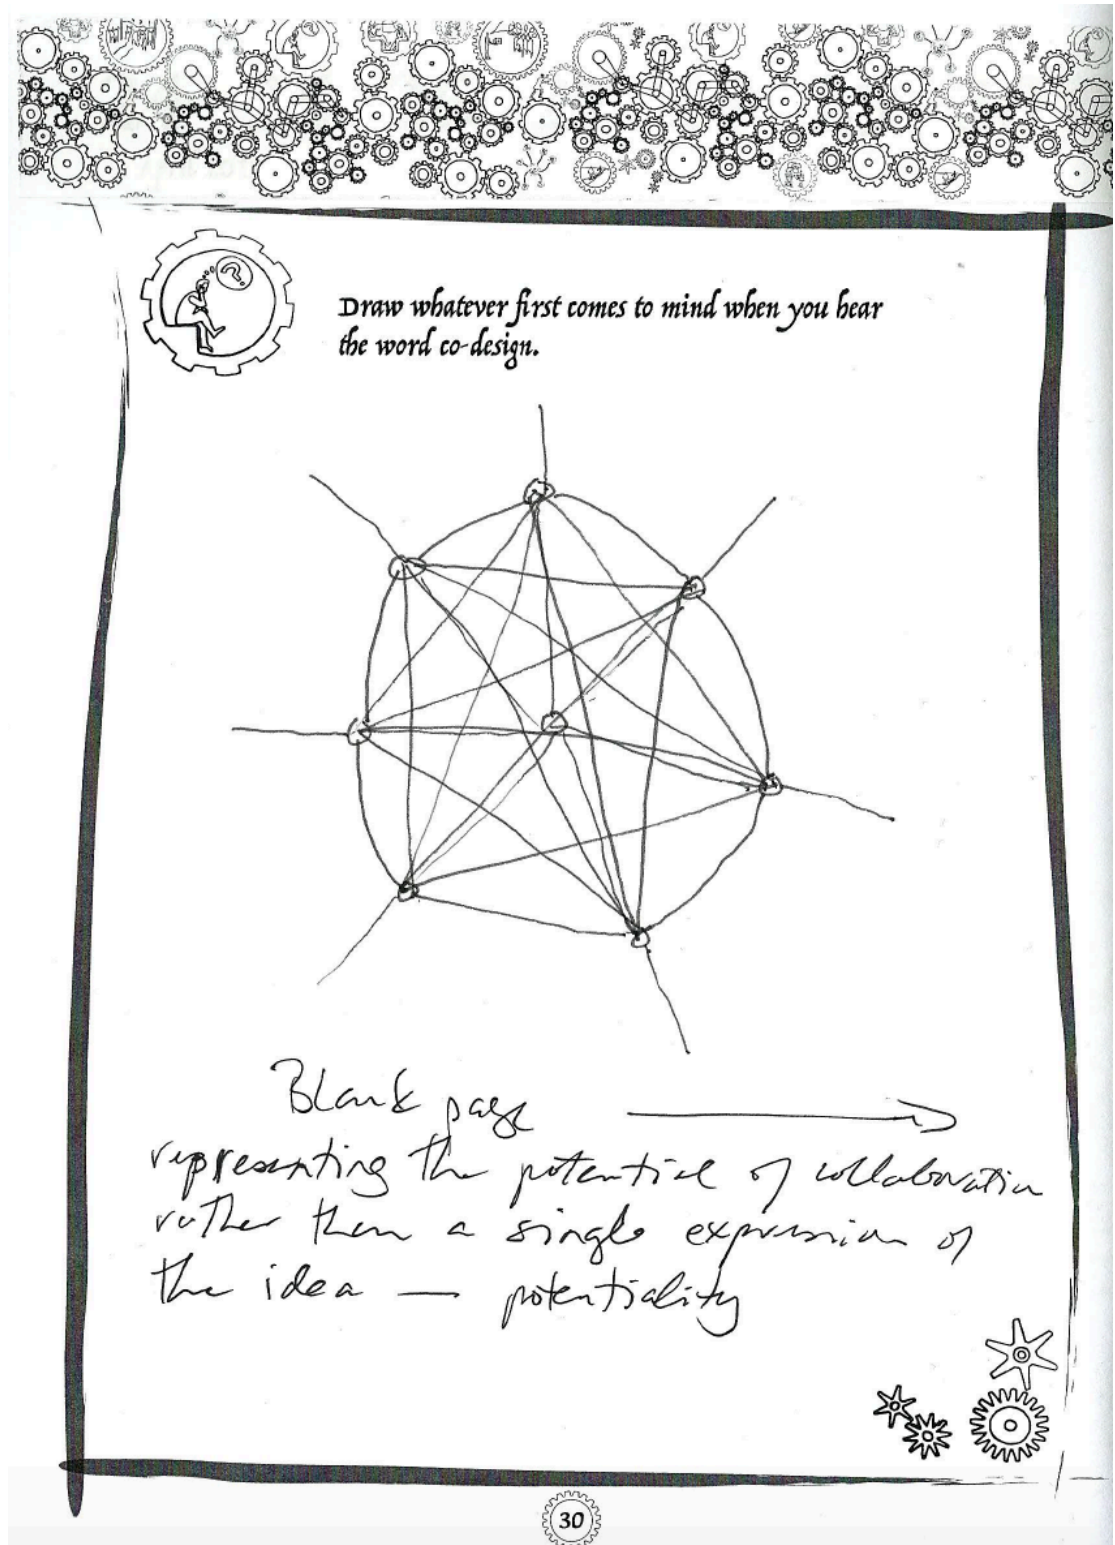 Draw whatever first comes to mind when you hear
the word co-design.
Blank page
representing the potential of collaboration
rather than a single expression of
the idea — potentiality
30